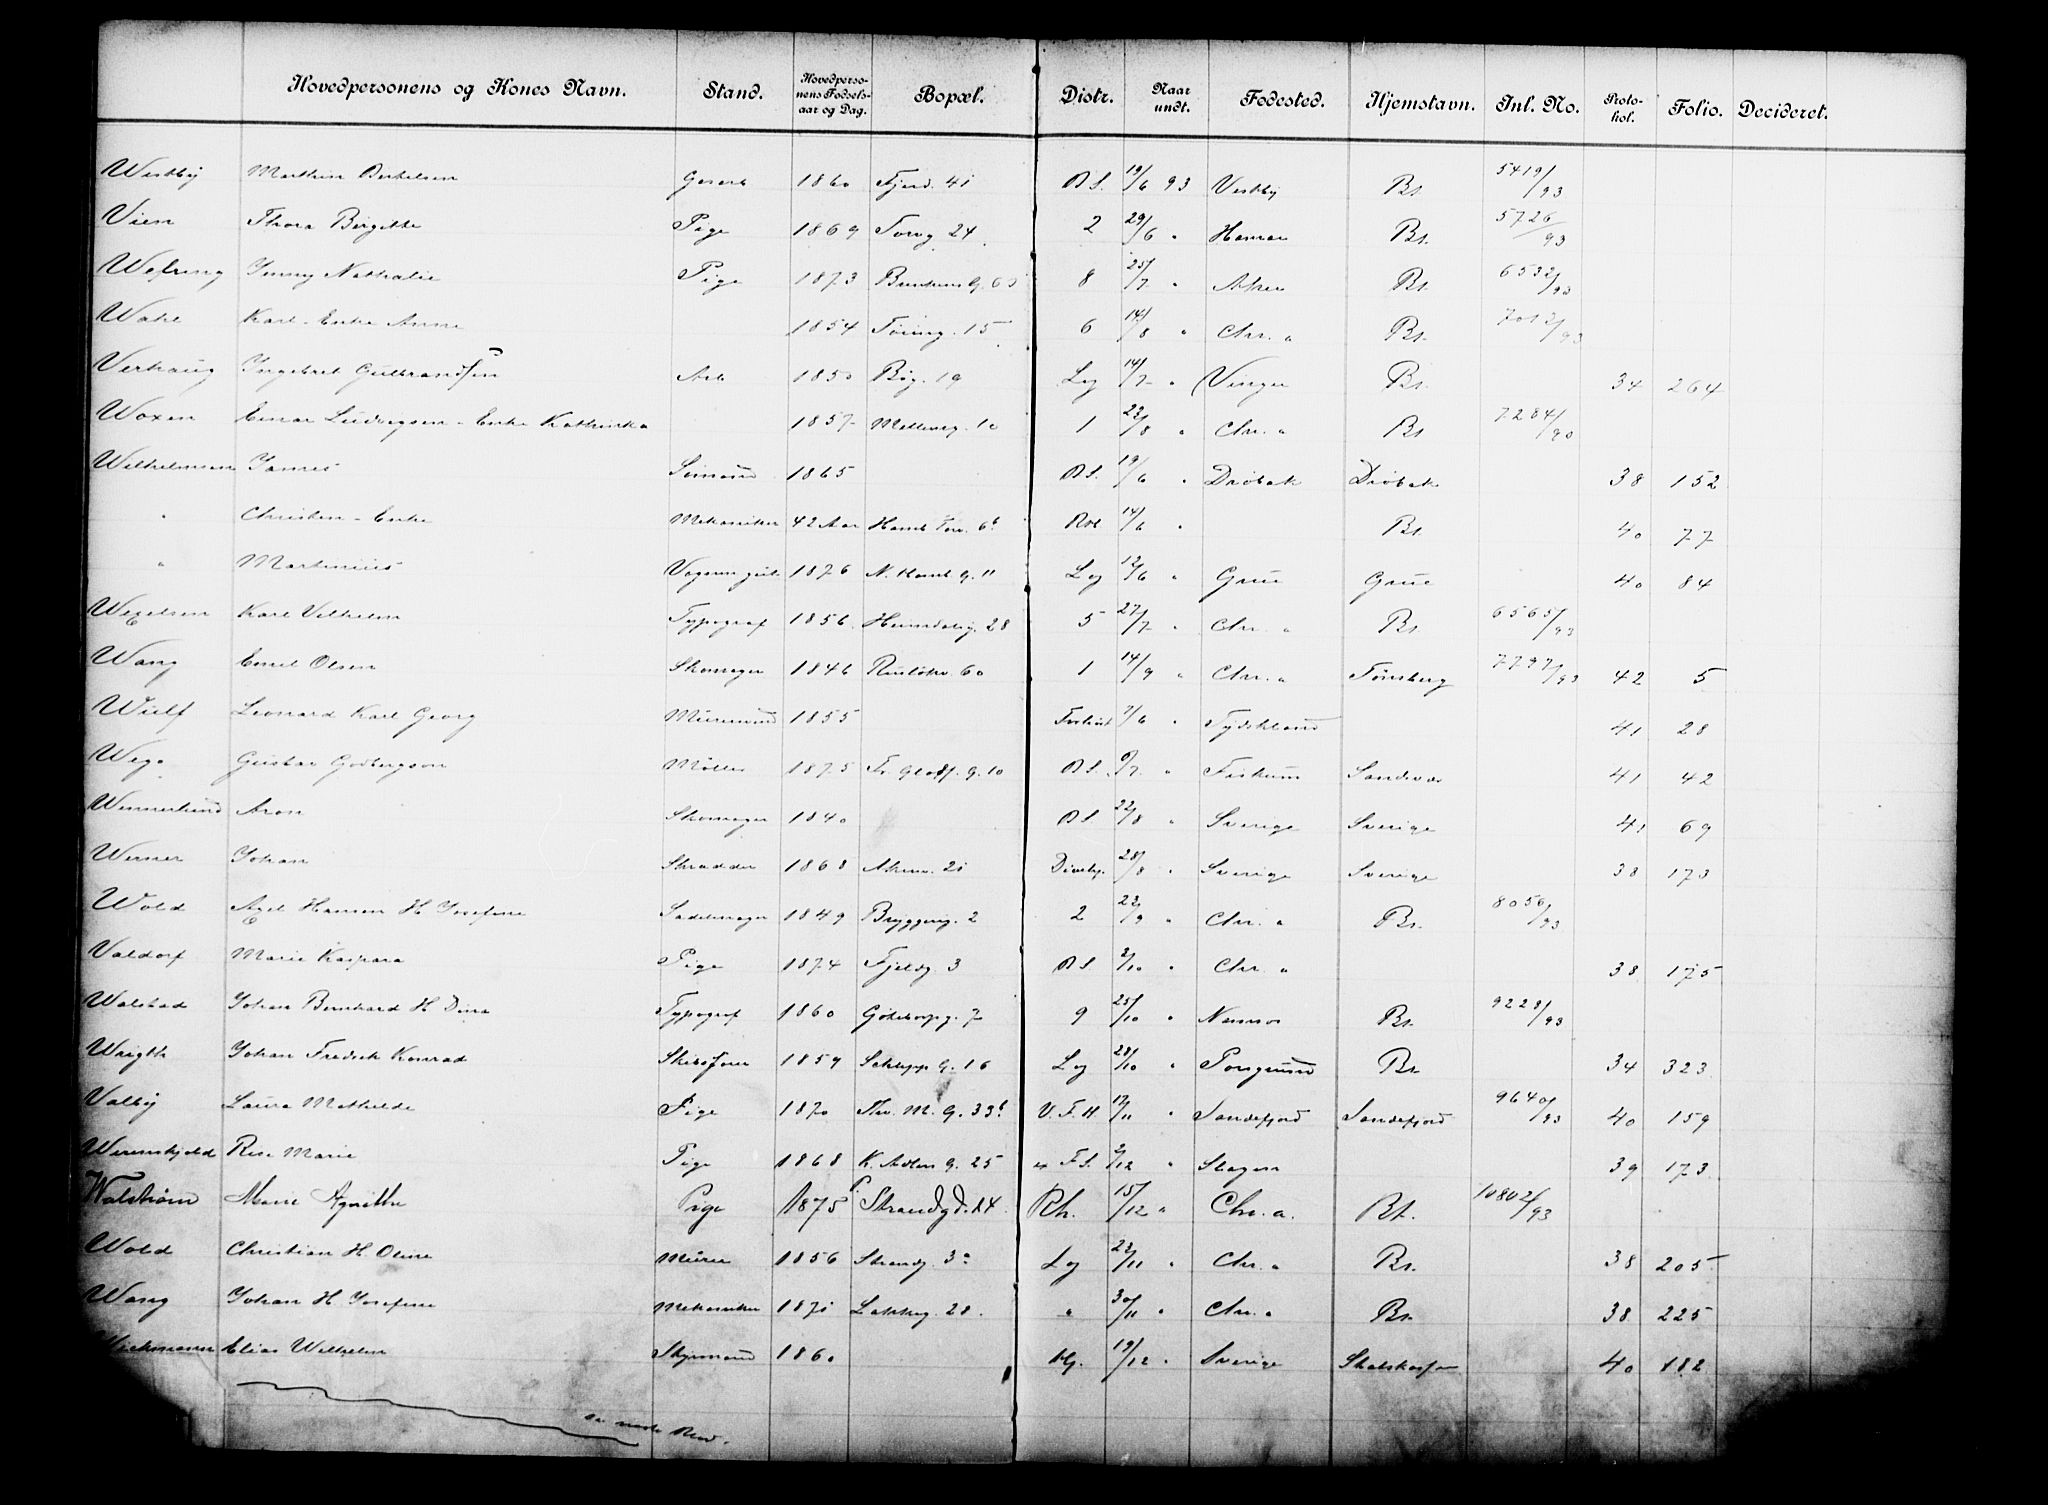 Hovedpersonens og Kones Navn. Stand. Hovedperso-nens Fødsels-aar og Dag. Bopæl. Distr. Naar undt. Fødested. Hjemstavn. Inl. No. Proto-kol. Folio. Decideret.
Westby 1860 Fjerd. 41 D.S. 19/6 93 Vestby Bt. 5419/93
Vien Thora Birgitte Pige 1869 Torvg. 24 2 29/6 " Hamar Bt. 5726/93
Wefring Jenny Nathalie Pige 1873 8 25/7 " Aker Bt. 6532/93
Karl - Enke Anne 1854 15 6 14/8 " Chr. a Bt. 7012/93
Verhaug Ingebret Gulbrandsen Arb 1850 Byg. 19 Lg 14/7 " Vinger Bt. 34 264
Woxen Einar Ludvigsen - Enke Kathinka 1857 Møllerg. 10 1 22/8 " Chr. a Bt 7284/90
Wilhelmsen James Sømand 1865 D.S. 19/6 " Drøbak Drøbak 38 152
" Christen - Enke Mekaniker 42 Aar 14/6 " Bt. 40 77
" Martinius 1876 N. 11 Lg 12/6 " Grue Grue 40 84
Wexelsen Karl Vilhelm Typograf 1856 Heimdalsg. 28 5 27/7 " Chr. a Bt. 6565/93
Wang Emil Olsen Skomager 1846 Ruseløkv. 60 1 14/9 " Chr. a Tønsberg 7797/93 42 5
Wulf Leonard Karl Georg Murmund 1855 7/6 " Tydskland 41 28
Wego Gustav Godbergson Møller 1875 10 D.S. 6/7 " Fiskum Sandsvær 41 42
Wennerlund Aron Skomager 1840 D.S 22/8 " Sverige Sverige 41 69
Werner Johan Skrædder 1868 Akersv. 21 28/8 " Sverige Sverige 38 173
Wold Axel Hansen H. Josefine Sadelmager 1849 Bryggerig. 2 2 22/9 " Chr. a Bt. 8056/93
Valdorf Marie Kaspara Pige 1874 Fjeldg. 3 D.S. 2/10 " Chr. a 38 175
Walstad Johan Bernhard H Dina Typograf 1860 Göteborgg. 7 9 25/10 " Namsos Bt. 9228/93
Wrigth Johan Fredrik Konrad Skibsfører 1859 Schepp G. 16 Lg 28/10 " Porsgrund Bt. 34 323
Valby Laura Mathilde Pige 1870 Thv. M. G. 33b V. F. H. 17/11 " Sandefjord Sandefjord 9640/93 40 159
Werenskjold Marie Pige 1868 K. Adlers G. 25 F.S. 2/12 " Slagen 39 173
Walstrøm Marie Agnethe Pige 1875 Strandgd. 24 Rh. 15/12 " Chr. a. Bt. 10802/93
Wold Christian H. Oline Murer 1856 Strandg. 3a Lg 22/11 " Chr. a Bt. 38 205
Wang Johan H. Josefine Mekaniker 1871 Lakkeg. 28. " 30/11 " Chr. a Bt. 38 225
Wichmann Elias Wilhelm 1860 19/12 " Sverige 40 182